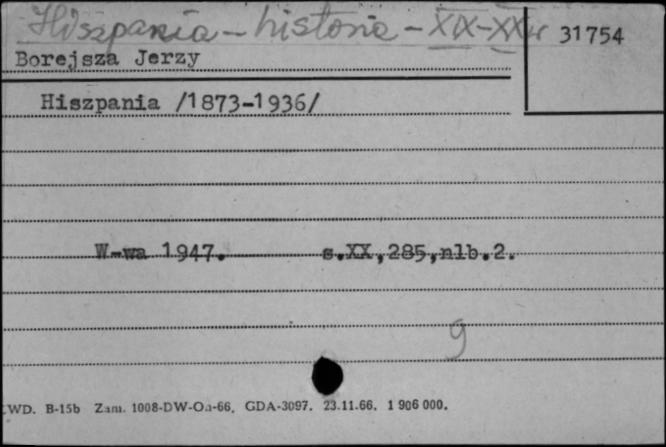 Hiszpania – historia – XIX–XXw 31754
Borejsza Jerzy
Hiszpania /1873-1936/
W-wa 1947. s.XX,285,nlb.2.
9
WD. B-15b Zam. 1008-DW-Oa-66. GDA-3097. 23.11.66. 1 906 000.